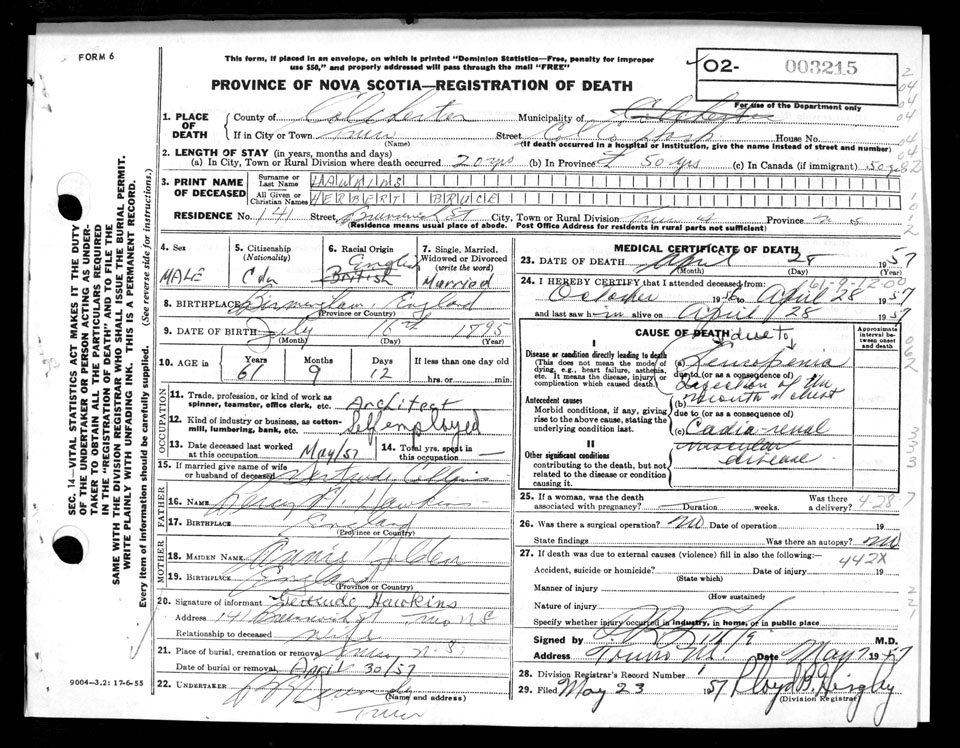 FORM 6
This form, if placed in an envelope, on which is printed "Dominion Statistics—Free, penalty for improper
use $50," and properly addressed will pass through the mail "FREE"
O2- 003215
For use of the Department only
PROVINCE OF NOVA SCOTIA—REGISTRATION OF DEATH
1. PLACE OF DEATH
County of Colchester Municipality of Colchester
If in City or Town Truro Street Col Co Hosp House No.
(Name) (If death occurred in a hospital or institution, give the name instead of street and number)
2. LENGTH OF STAY (in years, months and days)
(a) In City, Town or Rural Division where death occurred 20 yrs (b) In Province 50 yrs (c) In Canada (if immigrant) 50 yrs
3. PRINT NAME OF DECEASED
Surname or Last Name HAWKINS
All Given or Christian Names HERBERT BRUCE
RESIDENCE No. 141 Street Brunswick St City, Town or Rural Division Truro Province N S
(Residence means usual place of abode. Post Office Address for residents in rural parts not sufficient)
4. Sex MALE
5. Citizenship (Nationality) Cdn
6. Racial Origin English British
7. Single, Married, Widowed or Divorced (write the word) Married
8. BIRTHPLACE Birmingham, England
(Province or Country)
9. DATE OF BIRTH July 16th 1895
(Month) (Day) (Year)
10. AGE in Years Months Days If less than one day old
61 9 12 hrs. or min.
OCCUPATION
11. Trade, profession, or kind of work as spinner, teamster, office clerk, etc. Architect
12. Kind of industry or business, as cotton-mill, lumbering, bank, etc. Self employed
13. Date deceased last worked at this occupation May/57
14. Total yrs. spent in this occupation —
15. If married give name of wife or husband of deceased Gertrude
FATHER
16. NAME Hawkins
17. BIRTHPLACE England
(Province or Country)
MOTHER
18. MAIDEN NAME Annie Holden
19. BIRTHPLACE England
(Province or Country)
20. Signature of informant Gertrude Hawkins
Address 141 Brunswick St Truro N S
Relationship to deceased wife
21. Place of burial, cremation or removal Truro N. S
Date of burial or removal April 30/57
22. UNDERTAKER
(Name and address)
Truro
9004—3.2: 17-6-55
MEDICAL CERTIFICATE OF DEATH
23. DATE OF DEATH April 28 1957
(Month) (Day)
24. I HEREBY CERTIFY that I attended deceased from:
October 19 to April 28 1957
and last saw him alive on April 28 1957
CAUSE OF DEATH
Approximate interval between onset and death
I
Disease or condition directly leading to death
(This does not mean the mode of dying, e.g., heart failure, asthenia, etc. It means the disease, injury or complication which caused death.)
due to
(a) Leucopenia
due to (or as a consequence of)
Antecedent causes
Morbid conditions, if any, giving rise to the above cause, stating the underlying condition last.
due to (or as a consequence of)
(c) Cadia-renal
II
Other significant conditions
contributing to the death, but not related to the disease or condition causing it.
vascular
disease
25. If a woman, was the death associated with pregnancy? Duration weeks. Was there a delivery? 4-28-7
26. Was there surgical operation? No Date of operation 19
State findings Was there an autopsy? No
27. If death was due to external causes (violence) fill in also the following:— 442X
Accident, suicide or homicide? Date of injury 19
(State which)
Manner of injury
(How sustained)
Nature of injury
Specify whether injury occurred in industry, in home, or in public place
Signed by M.D.
Address Truro N.S. Date May 1957
28. Division Registrar's Record Number
29. Filed May 23 1957
(Division Registrar)
SEC. 14—VITAL STATISTICS ACT MAKES IT THE DUTY
OF THE UNDERTAKER OR PERSON ACTING AS UNDER-
TAKER TO OBTAIN ALL THE PARTICULARS REQUIRED
IN THE "REGISTRATION OF DEATH" AND TO FILE THE
SAME WITH THE DIVISION REGISTRAR WHO SHALL ISSUE THE BURIAL PERMIT.
WRITE PLAINLY WITH UNFADING INK. THIS IS A PERMANENT RECORD.
Every item of information should be carefully supplied. (See reverse side for instructions.)